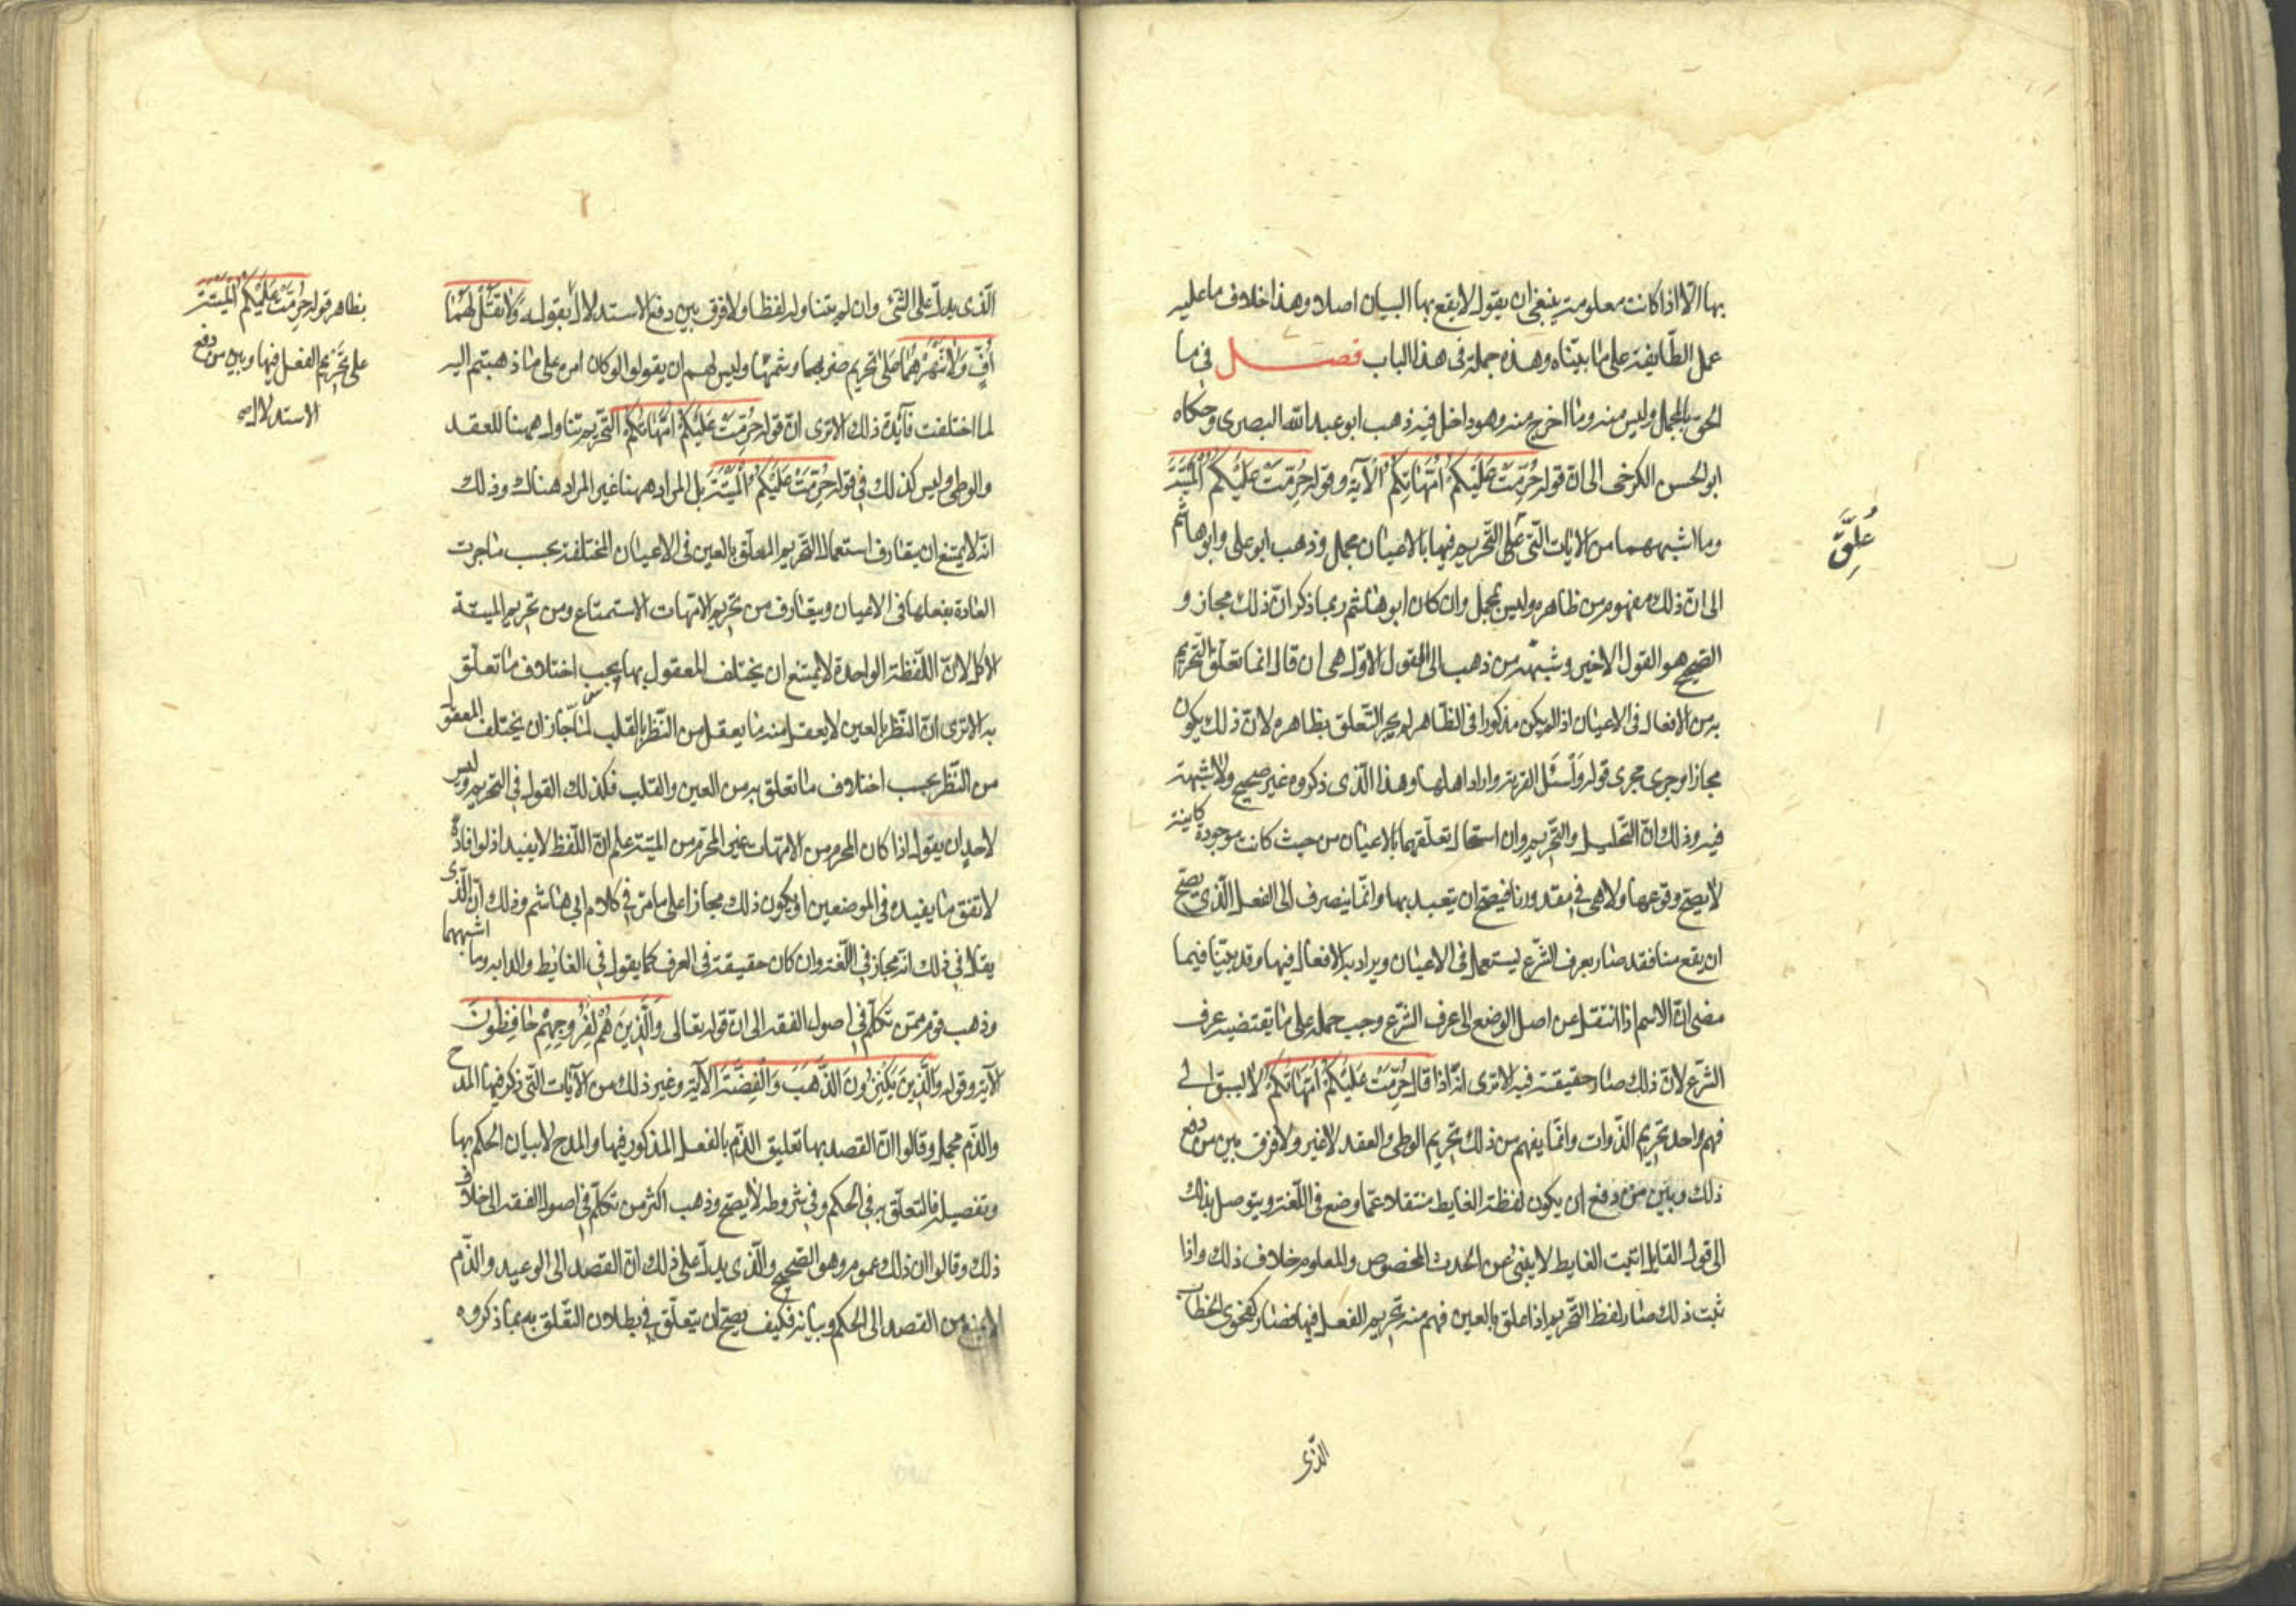 بها الا اذا كانت معلومة ينبغي ان يقول لا يقع بها البيان اصلا وهذا خلاف ما عليه
عمل الطّايفة على ما بيّناه وهذه جملة في هذا الباب فصل في ما
الحق بالمجمل وليس منه وما اخرج منه وهو داخل فيه ذهب ابو عبد الله البصرى وحكاه
ابو الحسن الكرخى الى انّ قوله حُرِّمَتْ عَلَيْكُمْ اُمَّهَاتُكُمْ الآية وقوله حُرِّمَتْ عَلَيْكُمُ الْمَيْتَةُ
وما اشبههما من الايات الّتى علق التّحريم فيها بالاعيان مجمل وذهب ابو على وابو هاشم
عُلِّقَ
الى انّ ذلك مفهوم من ظاهره وليس بمجمل وان كان ابو هاشم ربما ذكر انّ ذلك مجاز و
الصّحيح هو القول الاخير وشبهة من ذهب الى القول الاوّل هى ان قال انما تعلّق التّحريم
به من الافعال فى الاعيان اذا لم يكن مذكورا فى الظّاهر لم يجز التّعلق بظاهره لانّ ذلك يكون
مجازا وجرى مجرى قوله وَاسْئَلِ القرية واراد اهلها وهذا الّذى ذكروه غير صحيح ولا شبهة
فيه وذلك انّ التّحليل والتّحريم وان استحال تعلّقهما بالاعيان من حيث كانت موجودة كاينة
لا يصحّ وقوعها ولا هى فى مقدورنا فيصحّ ان يتعبد بها وانّما ينصرف الى الفعل الّذى يصحّ
ان يقع منا فقد صار بعرف الشّرع يستعمل فى الاعيان ويراد به الافعال فيها وقد بيّنا فيما
مضى انّ الاسم اذا انتقل عن اصل الوضع الى عرف الشّرع وجب حمله على ما يقتضيه عرف
الشّرع لانّ ذلك صار حقيقة فيه الا ترى انّه اذا قال حُرِّمَتْ عَلَيْكُمْ اُمَّهَاتُكُمْ لا يسبق الى
فهم واحد تحريم الذّوات وانّما يفهم من ذلك تحريم الوطى والعقد لا غير ولا فرق بين من دفع
ذلك وبين من دفع ان يكون لفظة الغايط منتقلا عمّا وضع فى اللّغة ويتوصل بذلك
الى قول القايل اتيت الغايط لا ينبئ عن الحدث المخصوص والمعلوم خلاف ذلك واذا
ثبت ذلك صار لفظ التّحريم اذا علق بالعين فهم منه تحريم الفعل فيها فصار كفحوى الخطاب
الذّى
الّذى يدلّ على الشّئ وان لم يتناوله لفظا ولا فرق بين دفع الاستدلال بقوله وَلَا تَقُلْ لَهُمَا
اُفٍّ وَلَا تَنْهَرْهُمَا على تحريم ضربهما وشتمهما وليس لهم ان يقولوا لو كان امر على ما ذهبتم اليه
بظاهر قوله حُرِّمَتْ عَلَيْكُمُ الْمَيْتَةُ
على تحريم الفعل فيها وبين من دفع
الاستدلال
لما اختلفت فآئدة ذلك الا ترى انّ قوله حُرِّمَتْ عَلَيْكُمْ اُمَّهَاتُكُمْ التّحريم تناول ههنا للعقد
والوطى وليس كذلك فى قوله حُرِّمَتْ عَلَيْكُمُ الْمَيْتَةُ بل المراد ههنا غير المراد هناك وذلك
انّه لا يمتنع ان يتعارف استعمال التّحريم المعلّق بالعين فى الاعيان المختلفة بحسب ما جرت
العادة بفعلها فى الاعيان ويتعارف من تحريم الامّهات الاستمتاع ومن تحريم الميتة
الاكل لانّ اللّفظة الواحدة لا يمتنع ان يختلف المعقول بها بحسب اختلاف ما تعلّق
به الا ترى انّ النّظر بالعين لا يعقل منه ما يعقل من النّظر بالقلب لمّا جاز ان يختلف المعقول
من النّظر بحسب اختلاف ما تعلق به من العين والقلب فكذلك القول فى التّحريم وليس
لاحد ان يقول اذا كان المحرم من الامّهات غير المحرّم من الميتة علم انّ اللّفظ لا يفيد اذ لو افاده
لاتفق ما يفيده فى الموضعين او يكون ذلك مجازا على ما مرّ فى كلام ابى هاشم وذلك انّ الّذى
يقال فى ذلك انّه مجاز فى اللّغة وان كان حقيقة فى العرف كما يقول فى الغايط والدابه وما اشبههما
وذهب قوم ممّن تكلّم فى اصول الفقه الى انّ قوله تعالى وَالَّذِينَ هُمْ لِفُرُوجِهِمْ حَافِظُونَ
الآية وقوله وَالَّذِينَ يَكْنِزُونَ الذَّهَبَ وَالْفِضَّةَ الآية وغير ذلك من الآيات الّتى ذكر فيها المدح
والذّم مجمل وقالوا انّ القصد بها تعليق الذّم بالفعل المذكور فيها والمدح لا بيان الحكم بها
وتفصيله فالتعلّق به فى الحكم وفى شروطه لا يصحّ وذهب اكثر من تكلّم فى اصول الفقه الى خلاف
ذلك وقالوا ان ذلك عموم وهو الصّحيح والّذى يدلّ على ذلك انّ القصد الى الوعيد والذّم
لا يمنع من القصد الى الحكم وبيانه فكيف يصحّ ان يتعلّق فى بطلان التّعلق به بما ذكروه